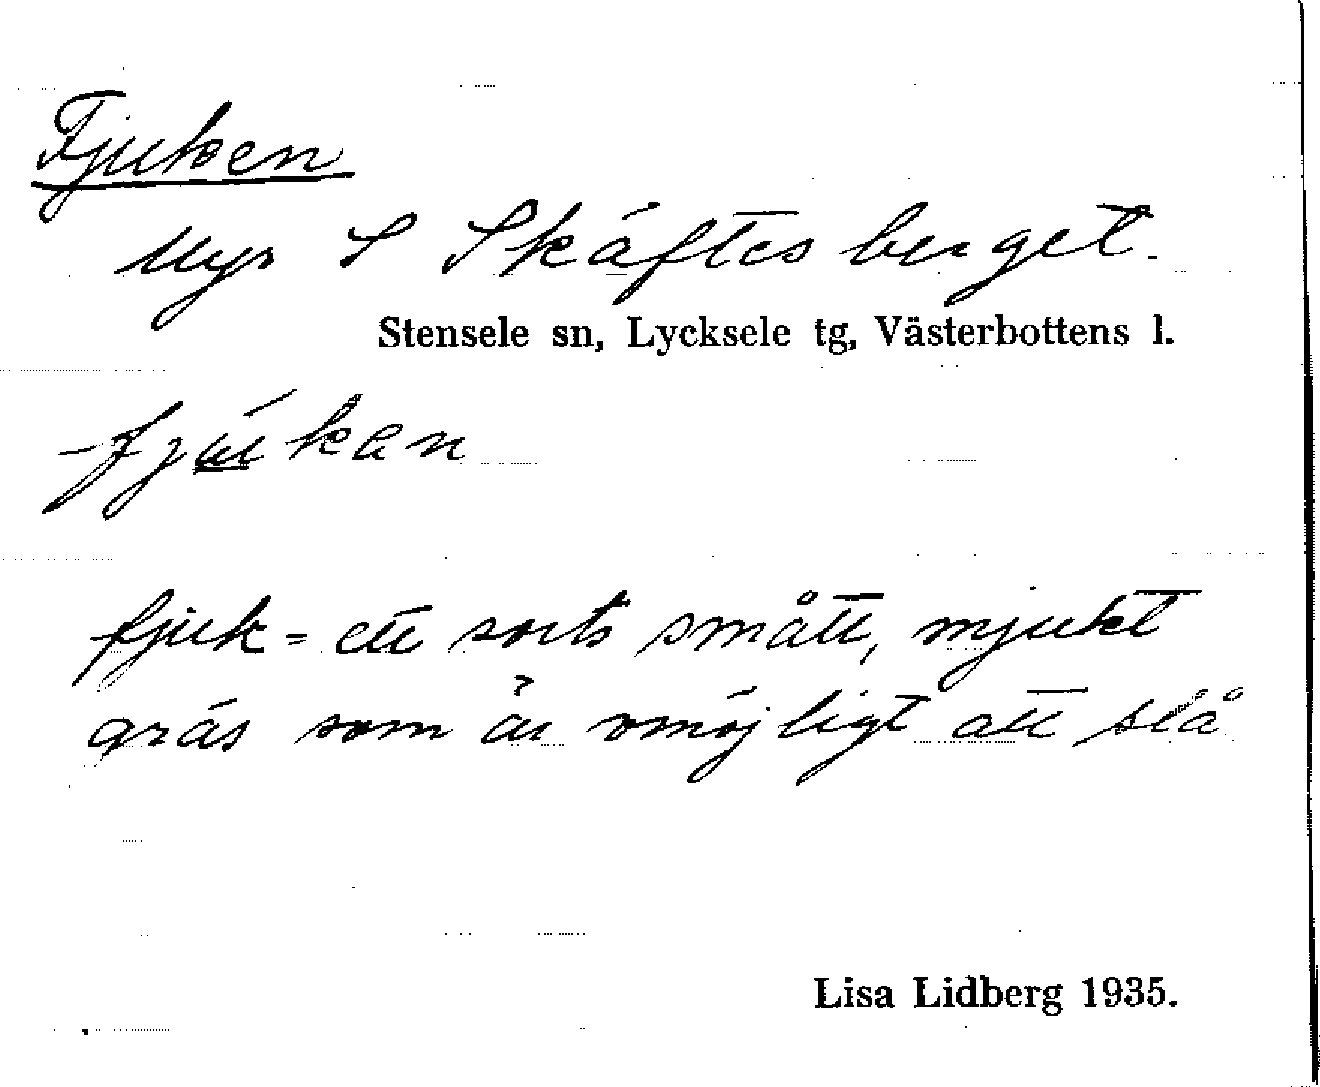 Fjuken
Myr S Skäftesberget.
Stensele sn, Lycksele tg, Västerbottens l.
fjúkan
fjuk = ett sorts smått, mjukt
gräs som är omöjligt att slå
Lisa Lidberg 1935.